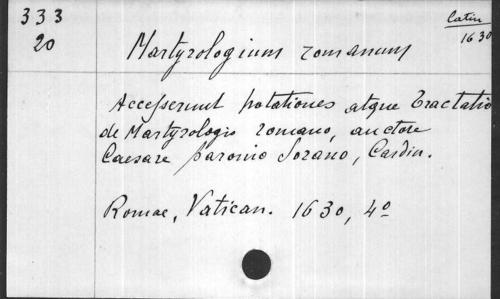 333
20
Latin
1630
Martyrologium romanum
Accesserunt notationes atque Tractatio
de Martyrologio romano, auctore
Caesare baronio Sorano, Cardin.
Romae, Vatican. 1630, 4º